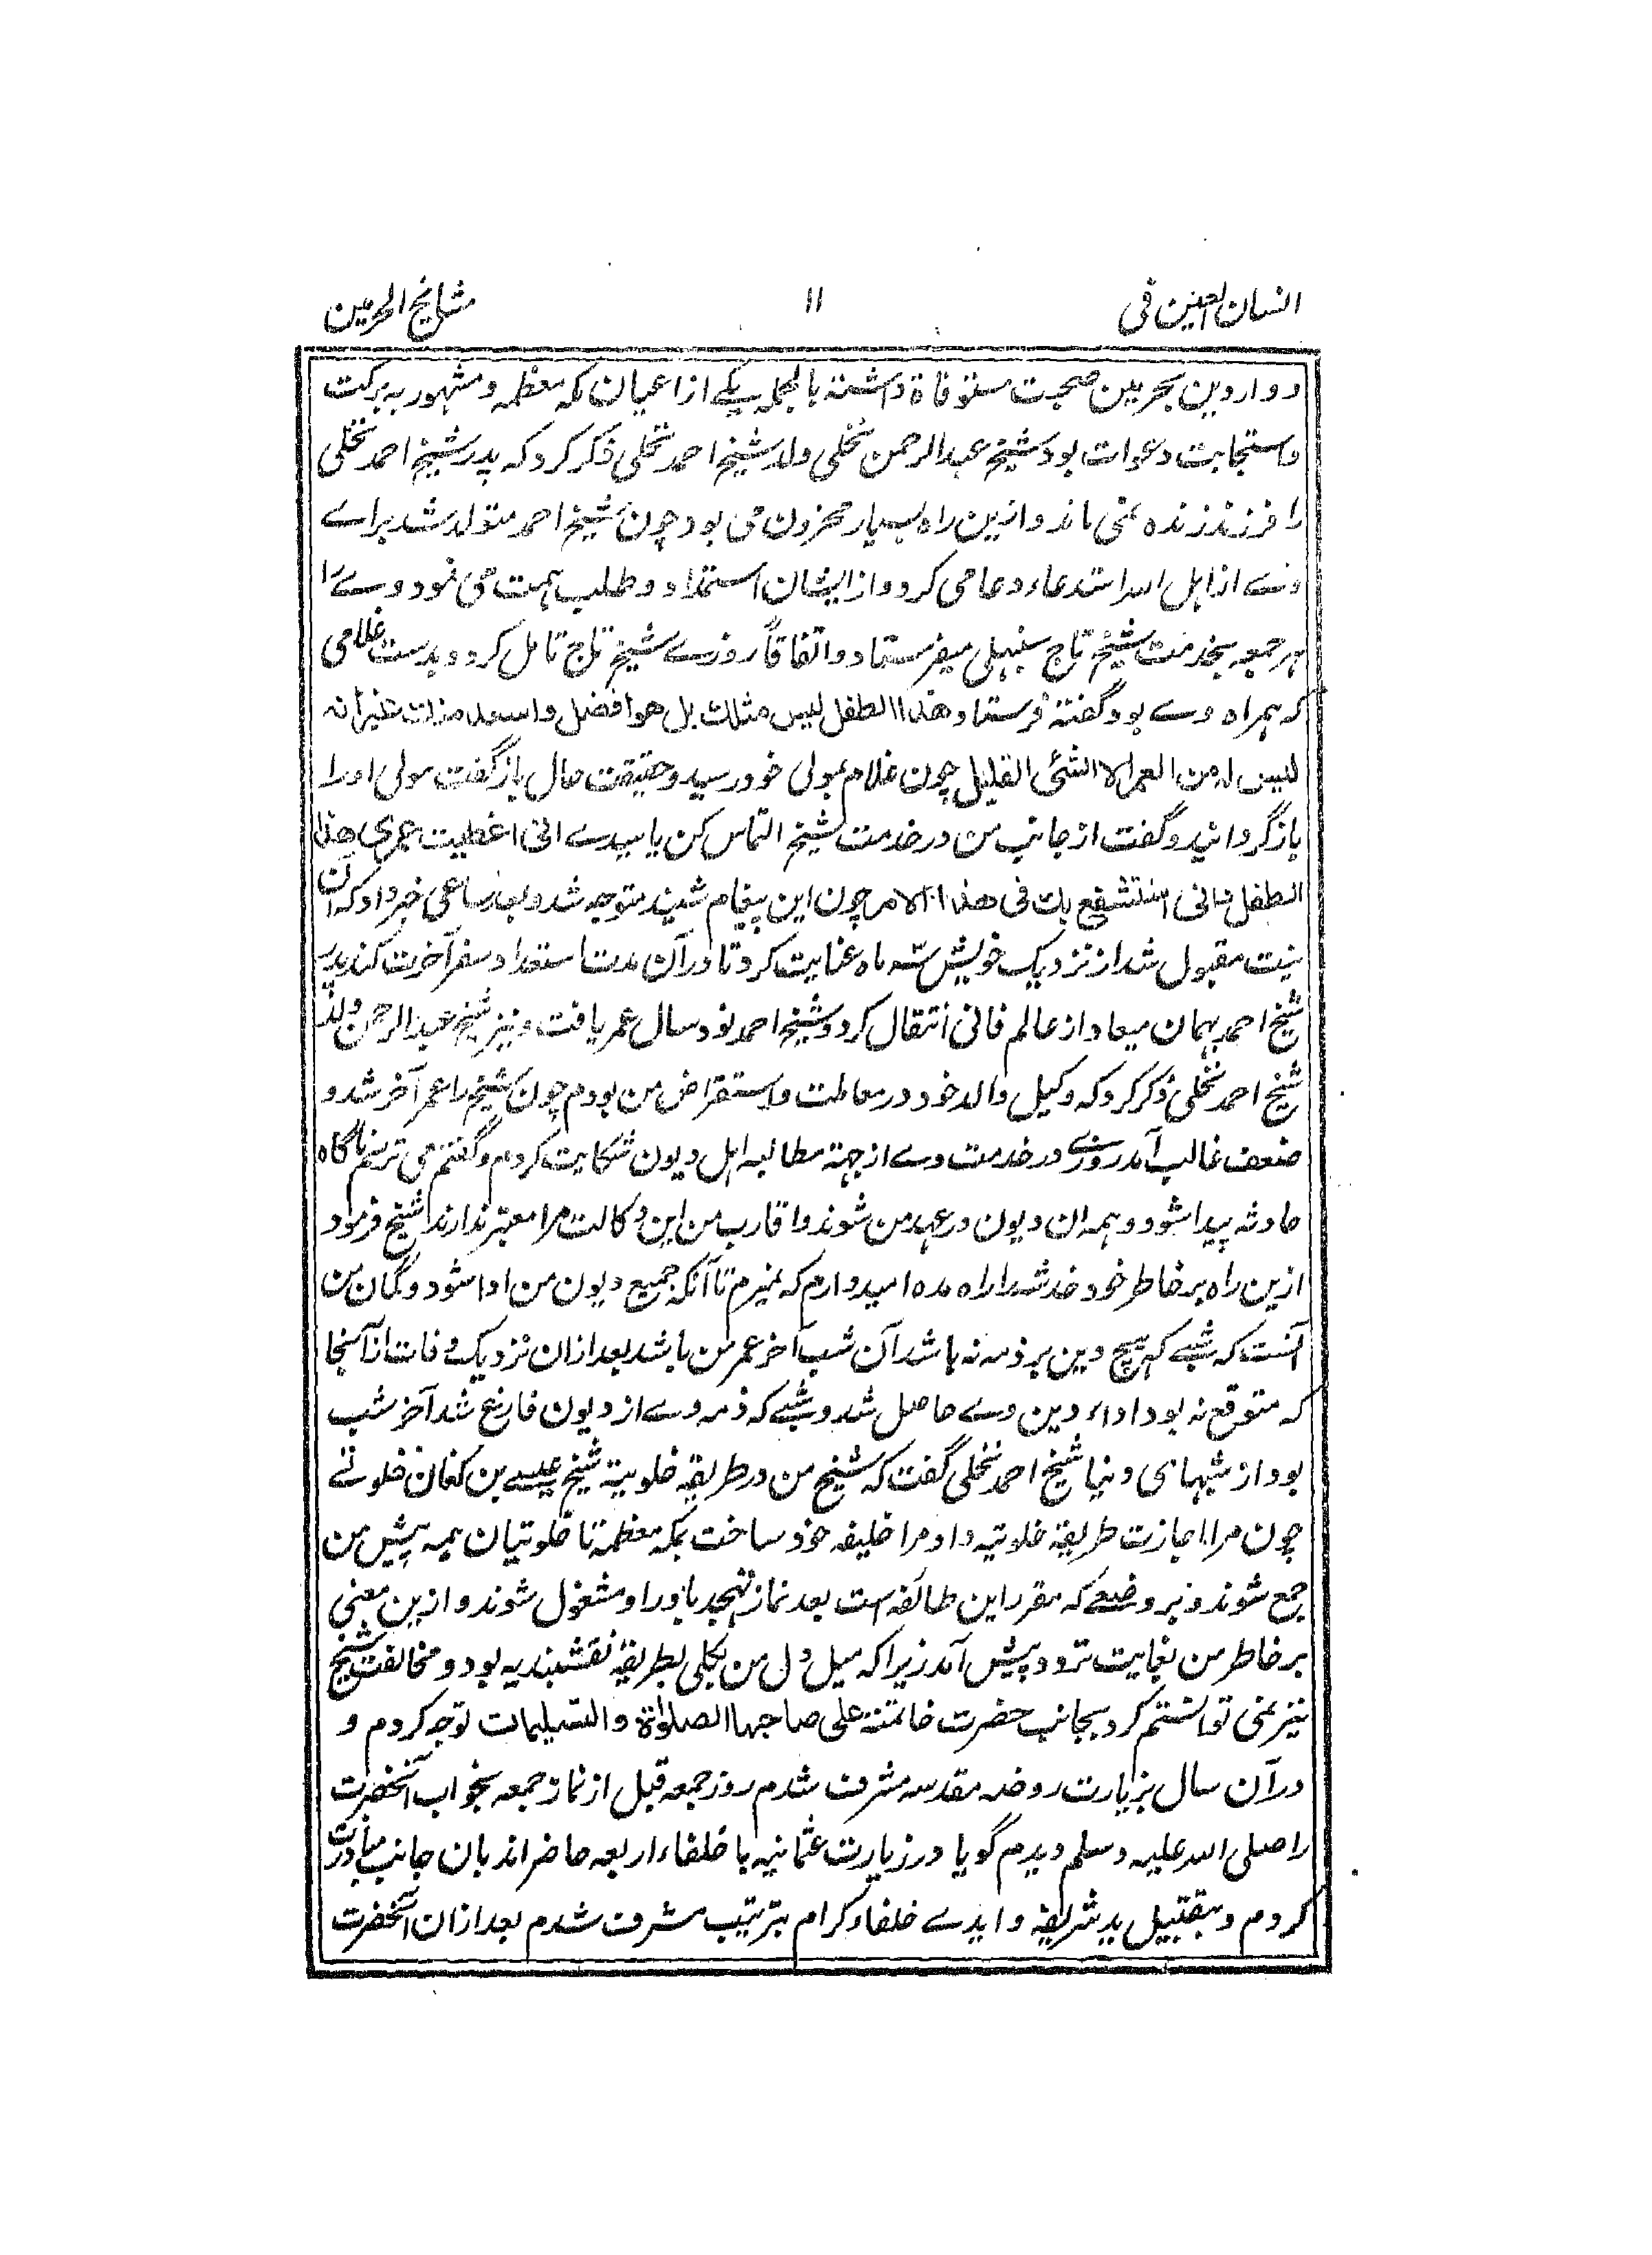 انسان العین فی ۱۱ مشایخ الحرمین
و واردین بحرمین صحبت مستوفاة داشته بالجمله یکے از اعیان مکه معظمه و مشهور به برکت
و استجابت دعوات بود شیخ عبدالرحمن نخلی ولد شیخ احمد نخلی ذکر کرد که پدر شیخ احمد نخلی
را فرزند زنده نمی ماند و ازین راه بسیار محزون می بود چون شیخ احمد متولد شد براے
وے از اهل الله استدعاء دعا می کرد و از ایشان استمداد و طلب همت می نمود وے را
هر جمعه بخدمت شیخ تاج سنبهلی میفرستاد و اتفاقاً روزے شیخ تاج تامل کرد و بدست غلامی
که همراه وے بود گفته فرستاد هذا الطفل لیس مثلك بل هو افضل و اسعد منك غیر انه
لیس له من العمر الا الشئ القلیل چون غلام بمولی خود رسید و حقیقت حال باز گفت مولی او را
باز گردانید و گفت از جانب من در خدمت شیخ التماس کن یا سیدے انی اعطیت عمری هذا
الطفل فانی استشفع بك فی هذا الامر چون این پیغام شنید متوجه شد و بعد ساعی خبر داد که آن
نیت مقبول شد از نزدیک خویش سه ماه عنایت کرد تا در آن مدت استعداد سفر آخرت کند پدر
شیخ احمد بهمان میعاد از عالم فانی انتقال کرد و شیخ احمد نود سال عمر یافت و نیز شیخ عبدالرحمن ولد
شیخ احمد نخلی ذکر کرد که وکیل والد خود در معاملت و استقراض من بودم چون شیخ را عمر آخر شد و
ضعف غالب آمد روزے در خدمت وے از جهة مطالبه اهل دیون شکایت کردم و گفتم می ترسم ناگاه
حادثه پیدا شود و همه ان دیون در عهد من شوند و اقارب من این وکالت مرا معتبر ندارند شیخ فرمود
ازین راه بر خاطر خود خدشه را راه مده امیدوارم که نمیرم تا آنکه جمیع دیون من ادا شود و گمان من
آنست که شبے که هیچ دین بر ذمه نه باشد آن شب آخر عمر من باشد بعد ازان نزدیک وفات از آنجا
که متوقع نه بود اداء دین وے حاصل شد و شبے که ذمه وے از دیون فارغ شد آخر شب
بود از شبهای دنیا شیخ احمد نخلی گفت که شیخ من در طریقه خلوتیة شیخ عیسے بن کنعان خلوتے
چون مرا اجازت طریقه خلوتیه داد و مرا خلیفه خود ساخت بمکه معظمه تا خلوتیان همه پیش من
جمع شوند و بر وضعے که مقرر این طائفه است بعد نماز تهجد باوراد مشغول شوند و ازین معنی
بر خاطر من بغایت تردد پیش آمد زیرا که میل دل من بکلی بطریقه نقشبندیه بود و مخالفت شیخ
نیز نمی توانستم کرد بجانب حضرت خاتمة علی صاحبها الصلوٰة و التسلیمات توجه کردم و
در آن سال بزیارت روضه مقدسه مشرف شدم روز جمعه قبل از نماز جمعه بخواب آنحضرت
را صلی الله علیه و سلم دیدم گویا در زیارت عثمانیه با خلفاء اربعه حاضر اند بان جانب مبادرت
کردم و بتقبیل ید شریفه و ایدے خلفاء کرام بترتیب مشرف شدم بعد ازان آنحضرت